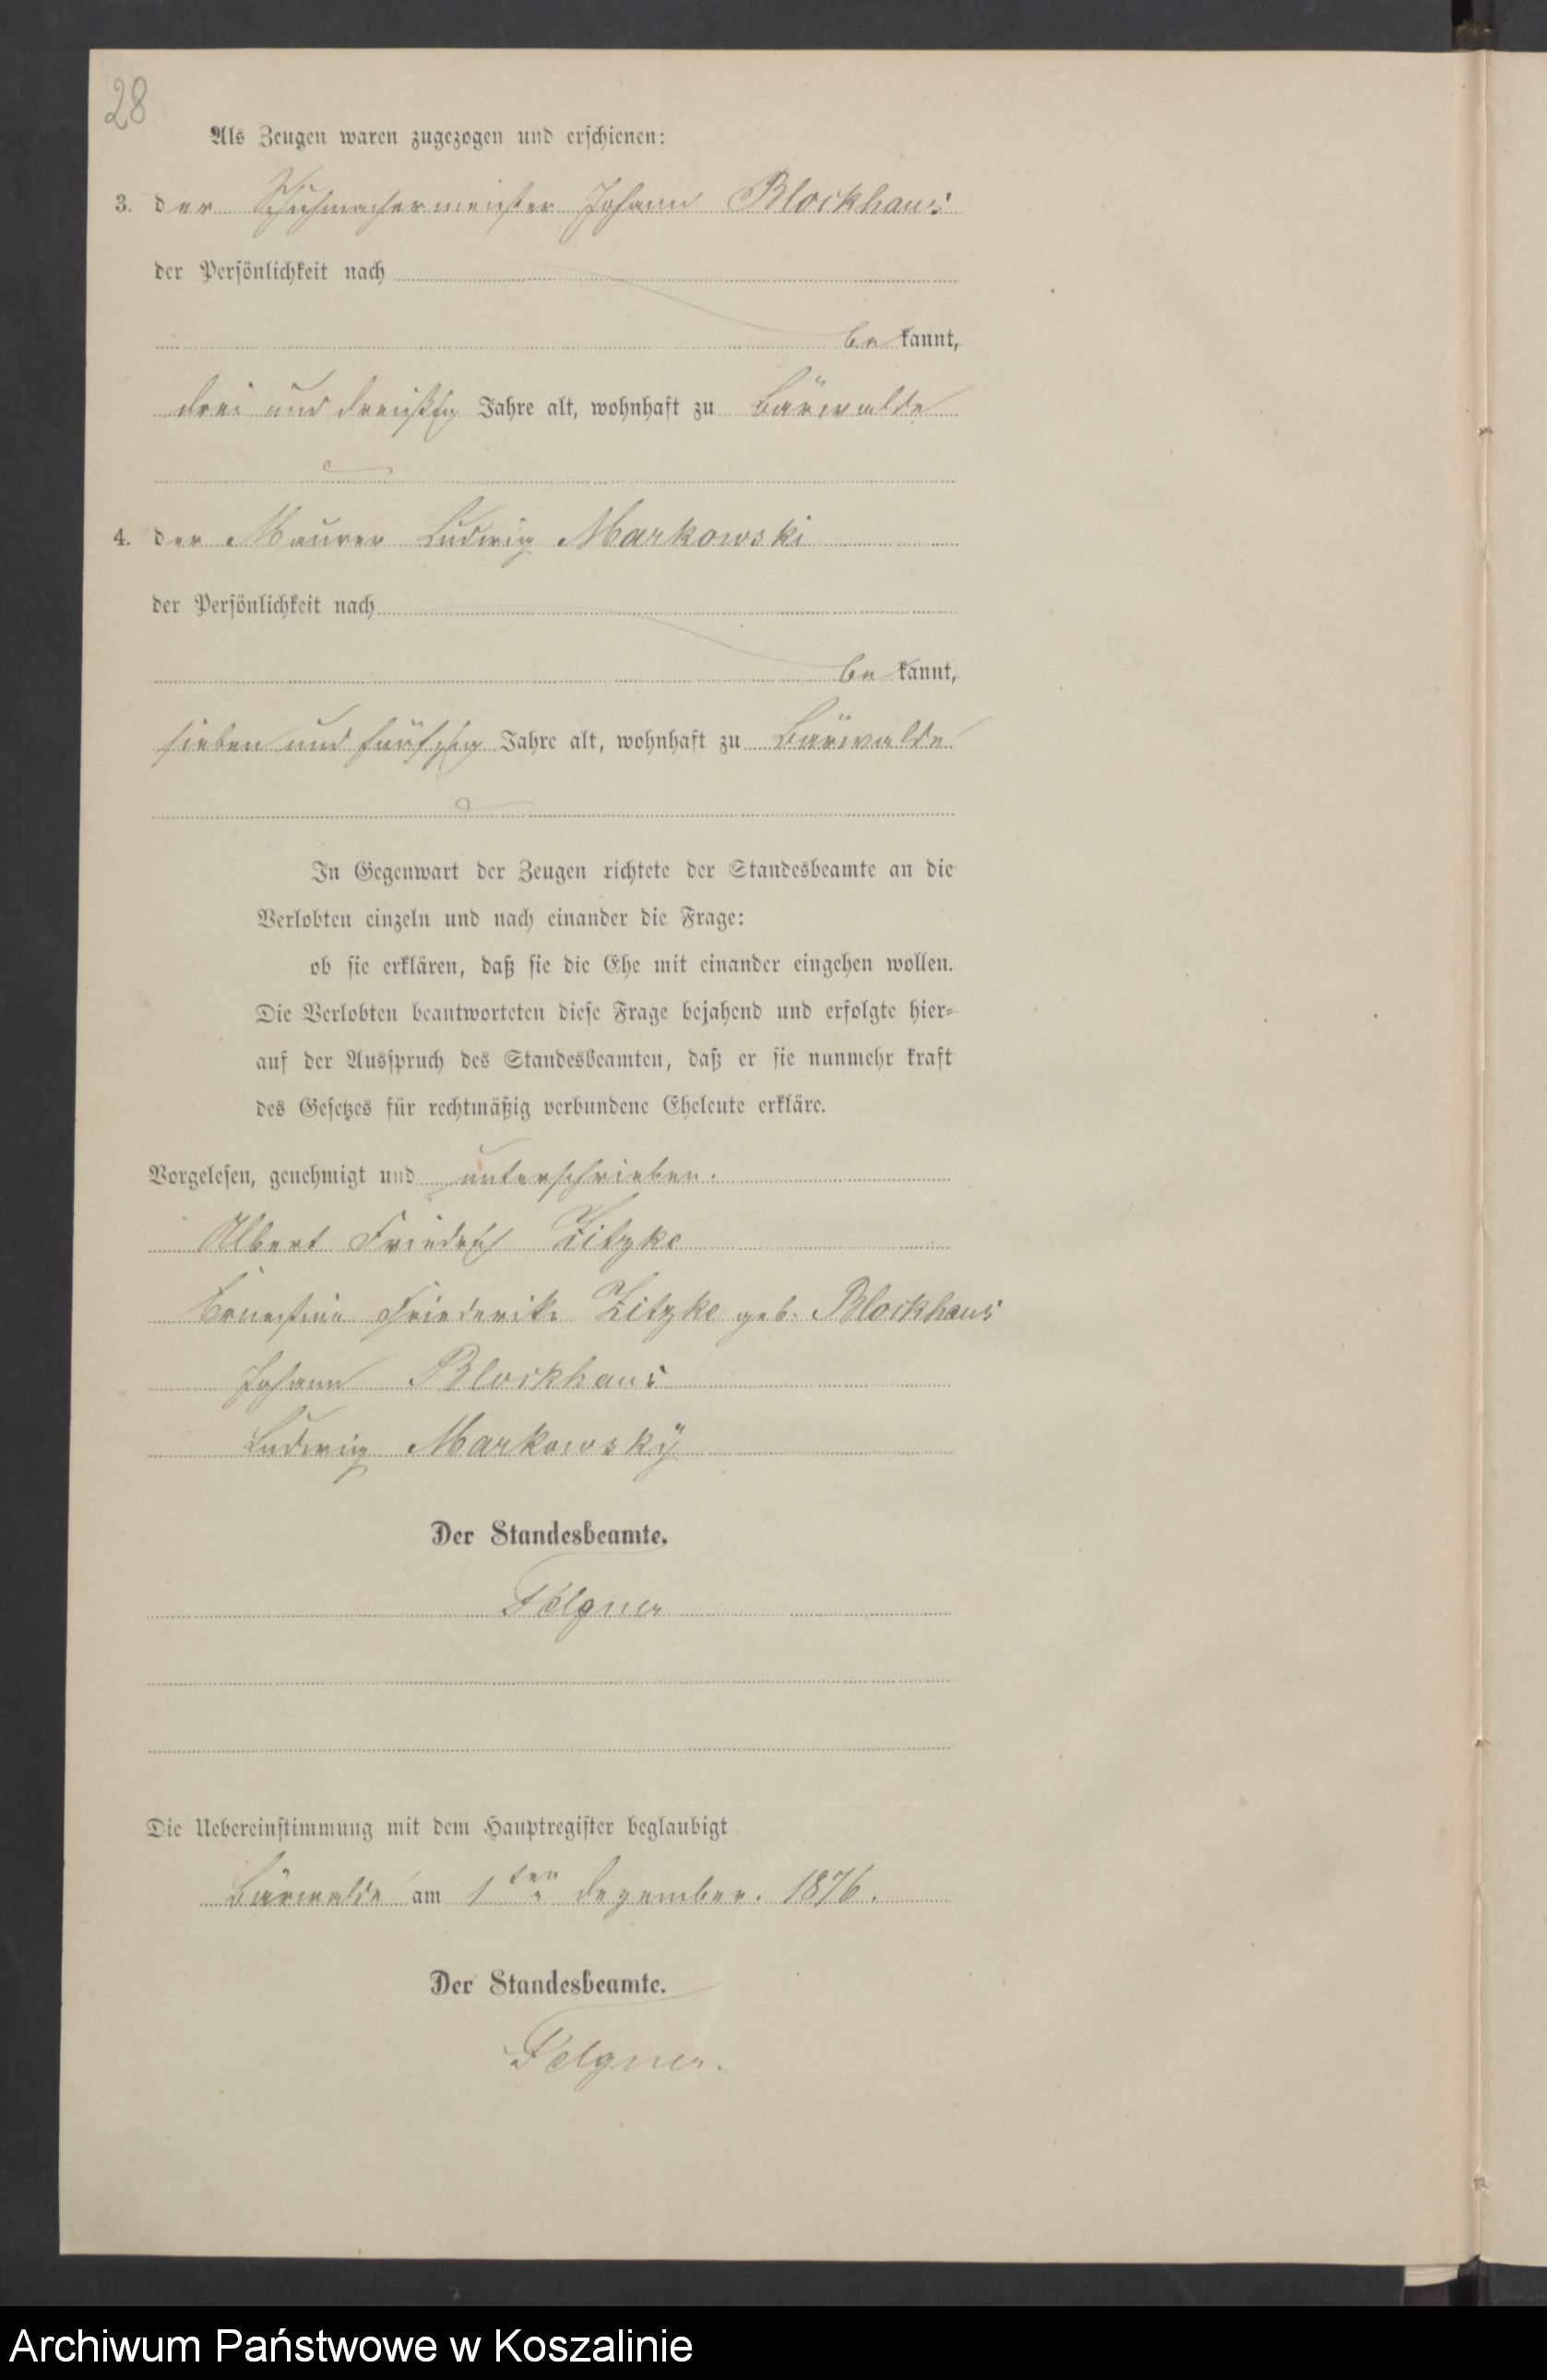 28
Als Zeugen waren zugezogen und erschienen:
3. der Schuhmachermeister Johann Blockhaus
der Persönlichkeit nach
be kannt,
drei und dreißig Jahre alt, wohnhaft zu Bärwalde
4. der Maurer Ludwig Markowski
der Persönlichkeit nach
be kannt,
sieben und fünfzig Jahre alt, wohnhaft zu Bärwalde
In Gegenwart der Zeugen richtete der Standesbeamte an die
Verlobten einzeln und nach einander die Frage:
ob sie erklären, daß sie die Ehe mit einander eingehen wollen.
Die Verlobten beantworteten diese Frage bejahend und erfolgte hier=
auf der Ausspruch des Standesbeamten, daß er sie nunmehr kraft
des Gesetzes für rechtmäßig verbundene Eheleute erkläre.
Vorgelesen, genehmigt und unterschrieben.
Albert Friedrich Zitzke
Ernestine Friederike Zitzke geb. Blockhaus
Johann Blockhaus
Ludwig Markowsky
Der Standesbeamte.
Felgner
Die Uebereinstimmung mit dem Hauptregister beglaubigt
Bärwalde am 1ten Dezember. 1876.
Der Standesbeamte.
Felgner.
Archiwum Państwowe w Koszalinie